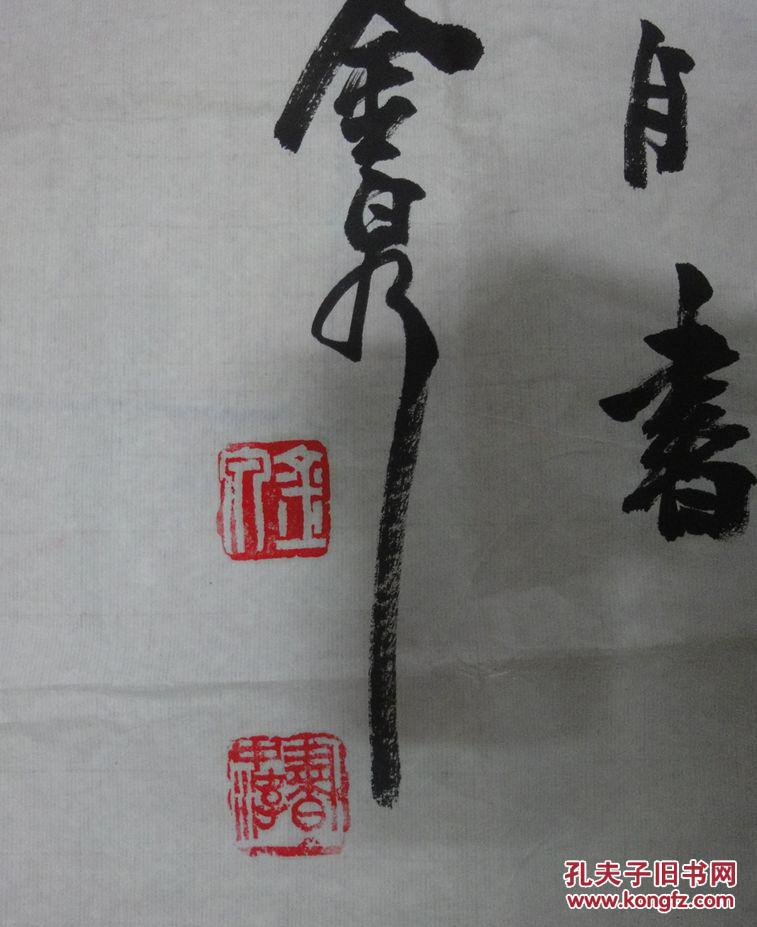 月書
金泉
金泉
孔夫子旧书网
www.kongfz.com